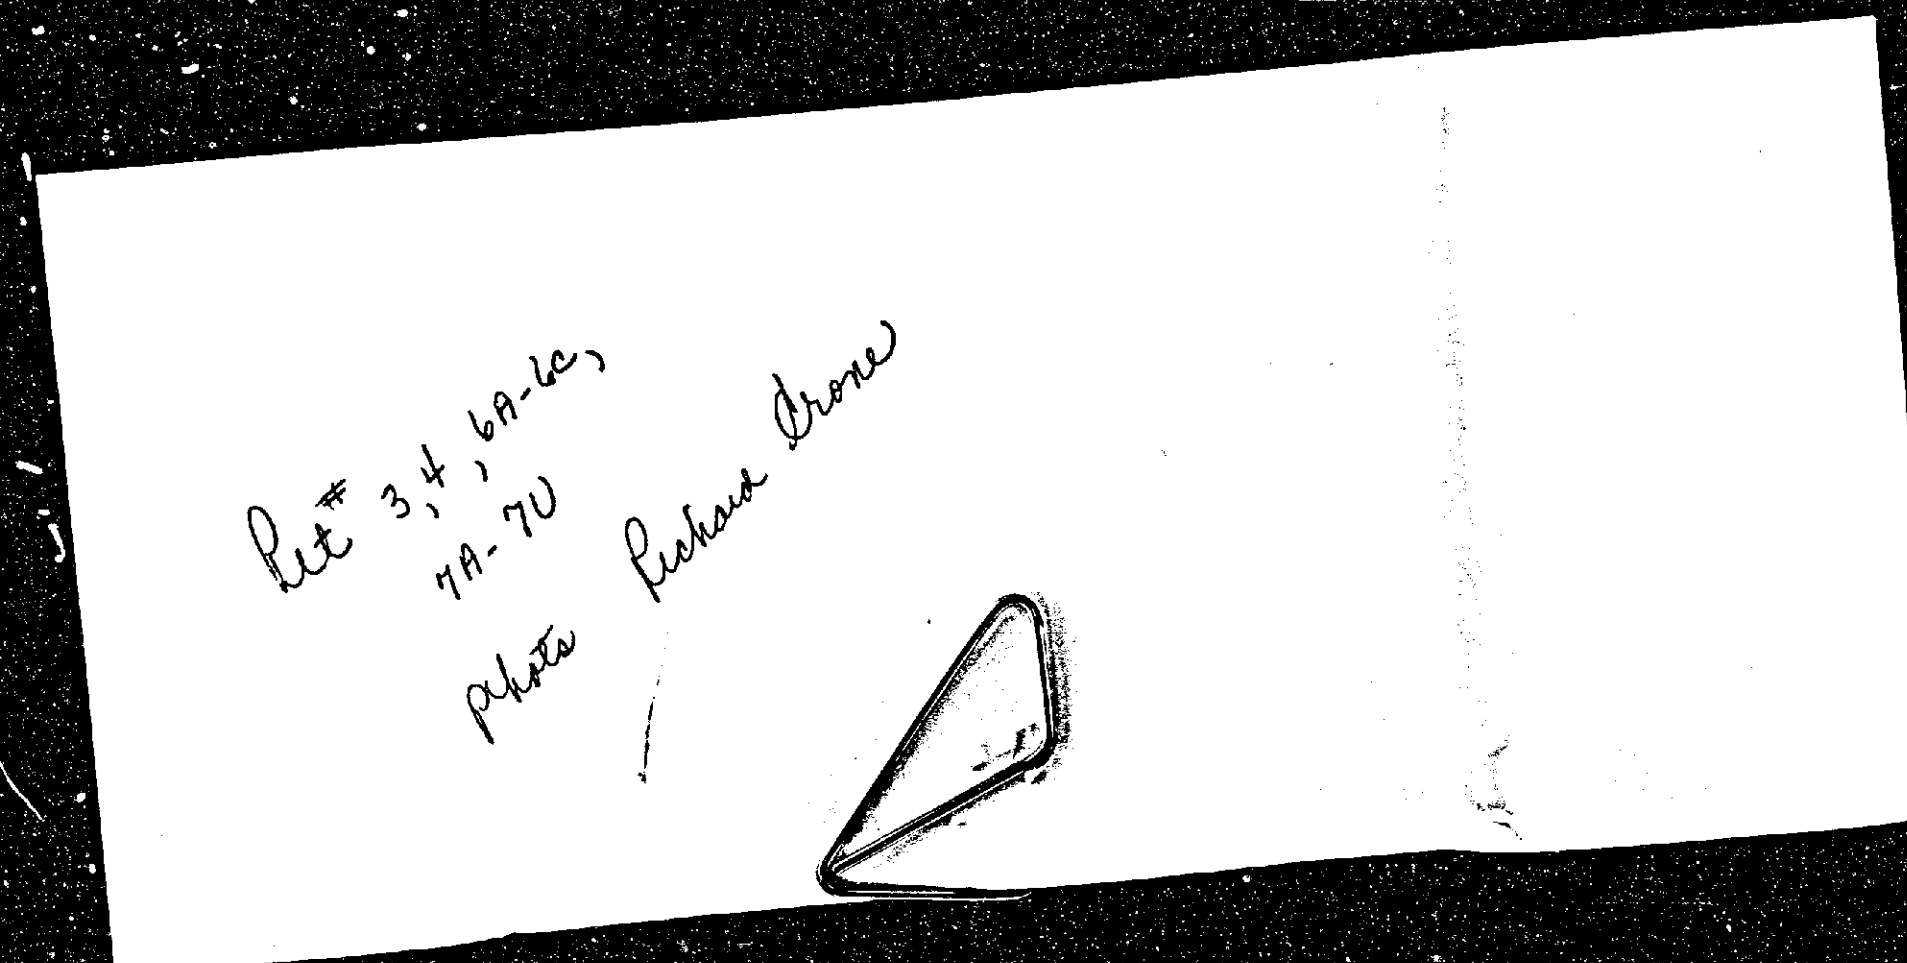 Pet # 3, 4, 6A-6C,
7A-7U
photos Richard Crone